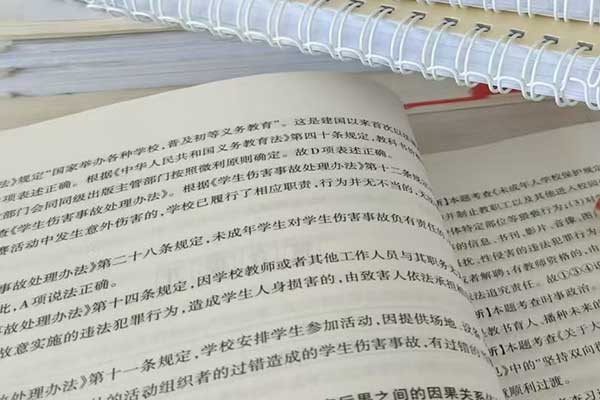 法》规定"国家举办各种学校，普及初等义务教育"。这是建国以来首次以
项表述正确。根据《中华人民共和国义务教育法》第四十条规定，教科书
部门会同同级出版主管部门按照微利原则确定。故D项表述正确。
查《学生伤害事故处理办法》。根据《学生伤害事故处理办法》第十二条规
赛活动中发生意外伤害的，学校已履行了相应职责，行为并无不当的，
事故处理办法》第二十八条规定，未成年学生对学生伤害事故负有责任的
此，A项说法正确。
故处理办法》第十四条规定，因学校教师或者其他工作人员与其职务
故意实施的违法犯罪行为，造成学生人身损害的，由致害人依法承担
处理办法》第十一条规定，学校安排学生参加活动，因提供场地、设
的活动组织者的过错造成的学生伤害事故，有过错的
后果之间的因果关系
析】本题考查《未成年人学校保护规定
并制止教职工以及其他进入校园
体特定部位等猥亵行为
的信息、书刊、影片、音像、图
、性侵害的违法犯罪行为
者解聘；有教师资格的，由
法追究责任。故①③④
析】本题考查时事政治。
教书育人、播种未来的
析】本题考查《关于大
》中的"坚持双向衔
就顺利过渡。